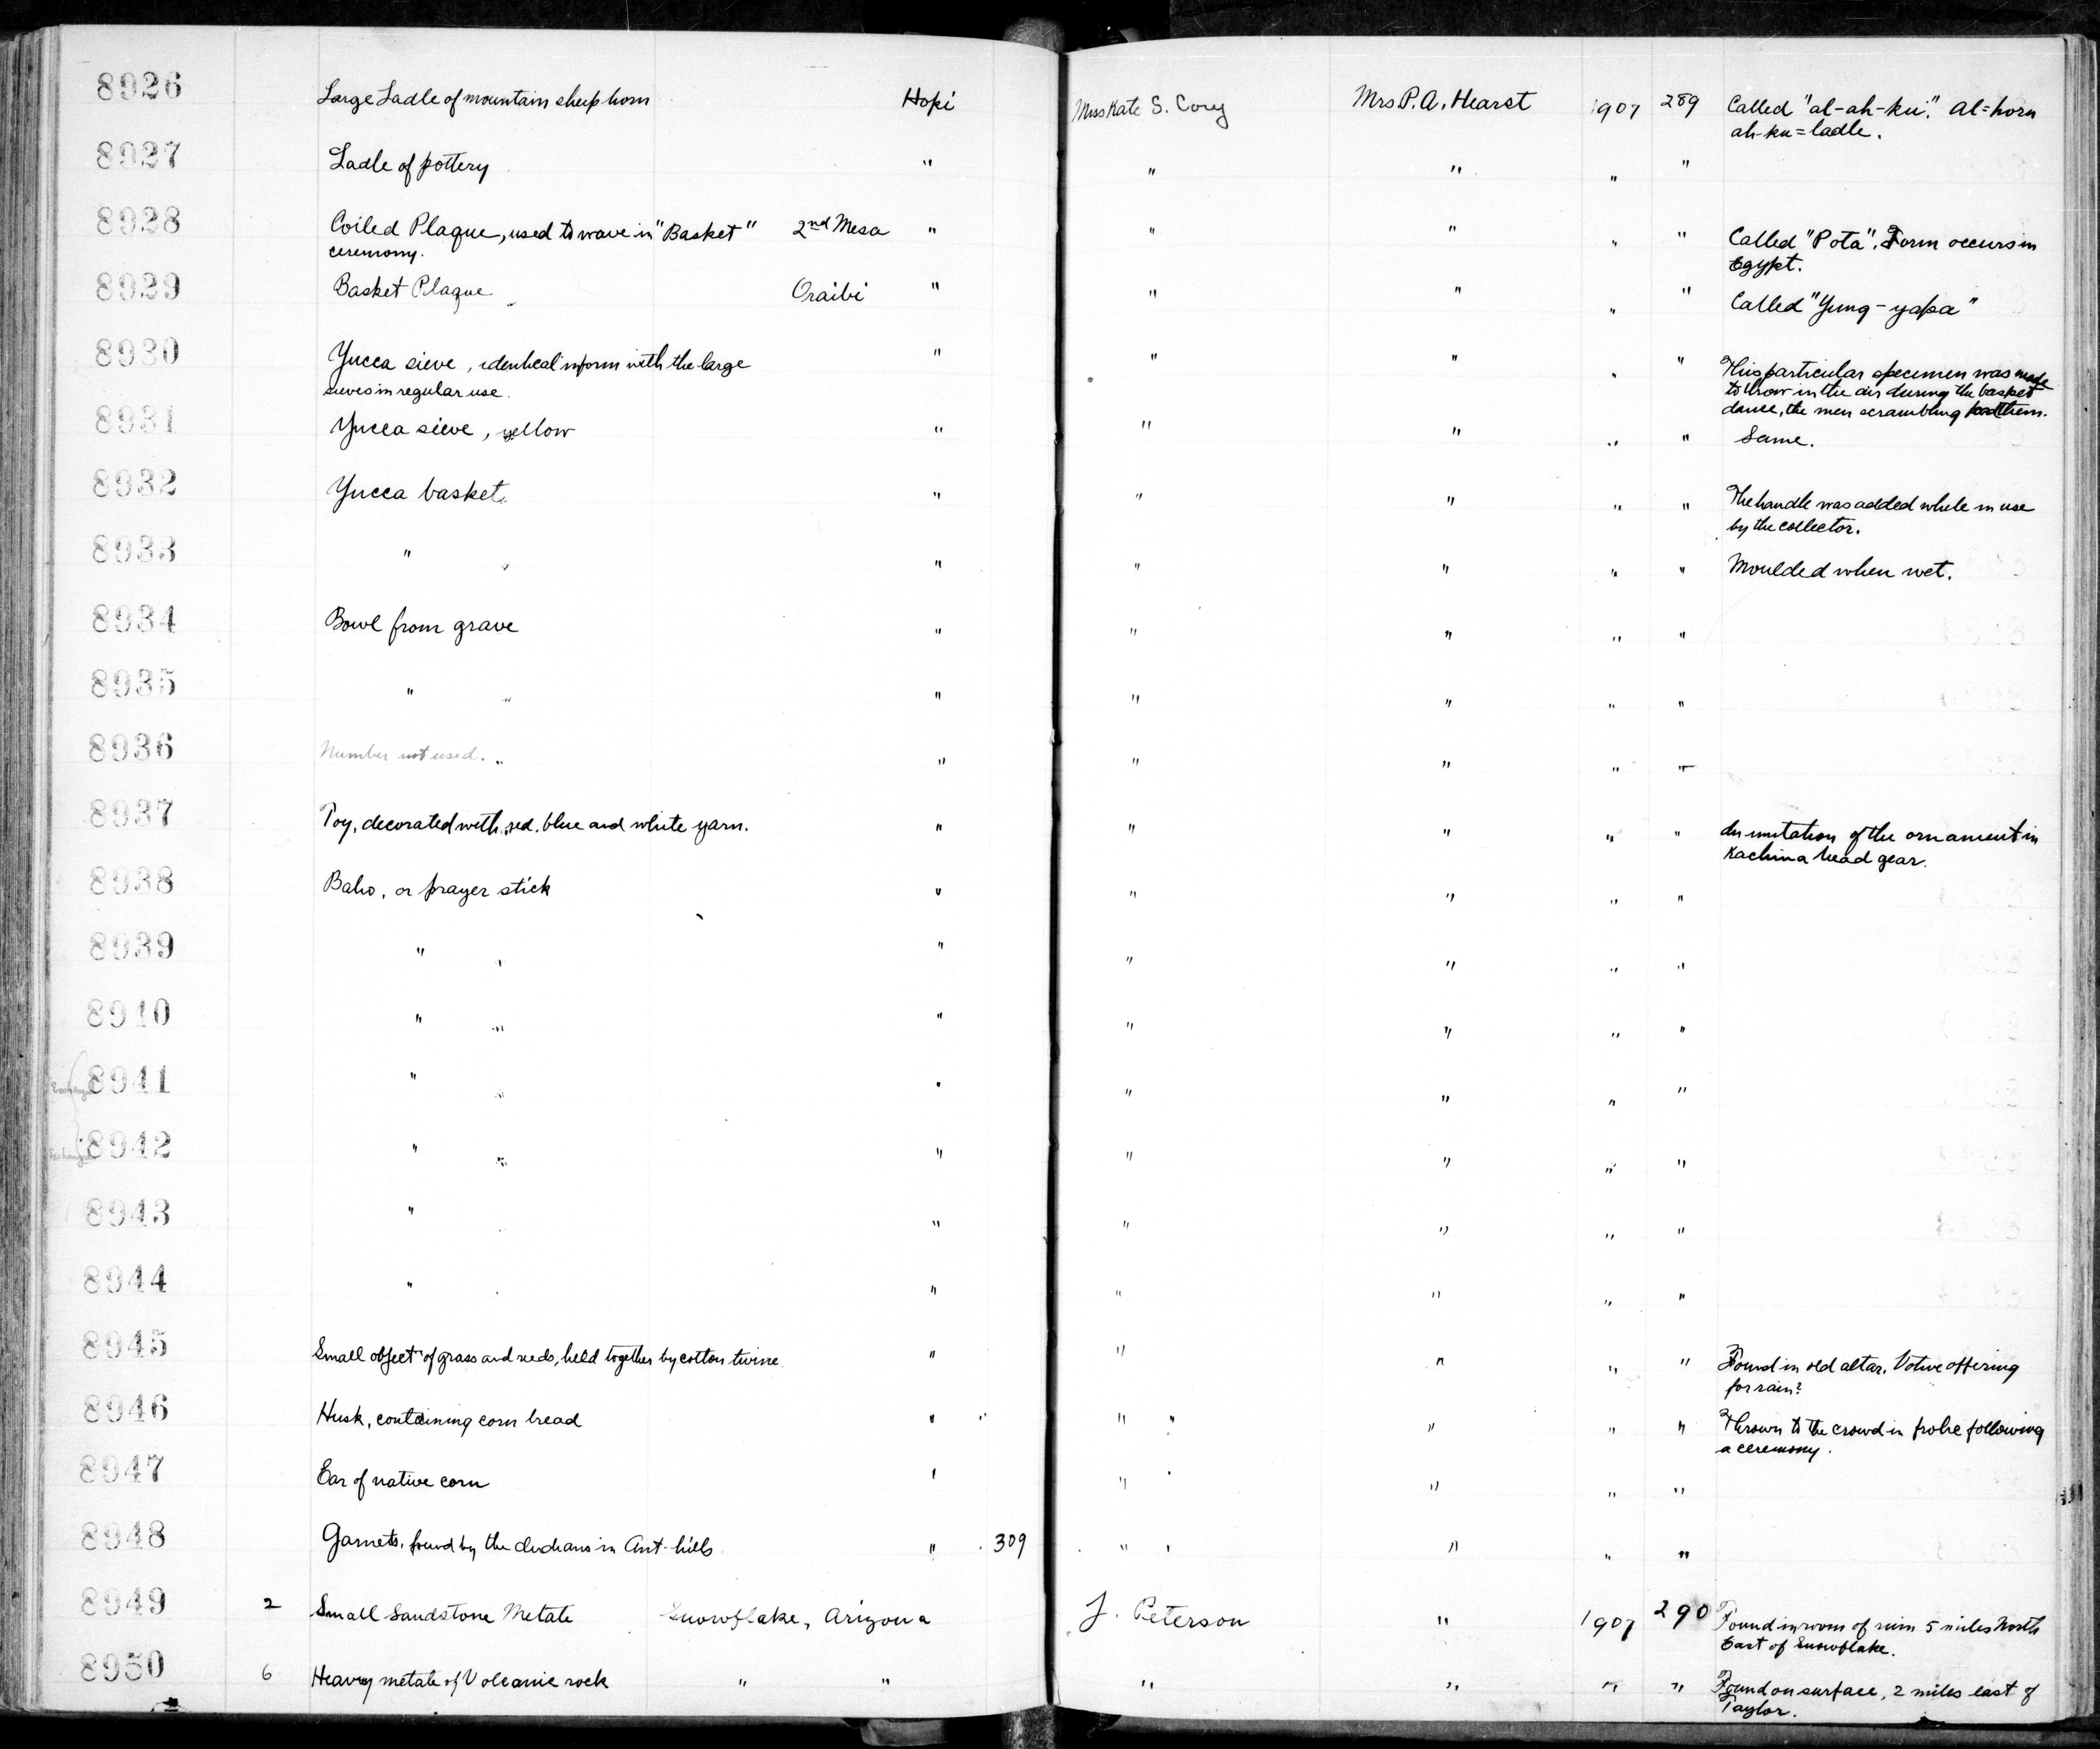 8926 Large Ladle of mountain sheep horn Hopi Miss Kate S. Cory Mrs P. A. Hearst 1907 289 Called "al-ah-ku". Al=horn
ah-ku=ladle.
8927 Ladle of pottery " " " " "
8928 Coiled Plaque, used to wave in "Basket" 2nd Mesa " " " " " Called "Pota". Form occurs in
ceremony. Egypt.
8929 Basket Plaque Oraibi " " " " " Called "Yung-yapa"
8930 Yucca sieve, identical in form with the large " " " " " This particular specimen was made
sieves in regular use. to throw in the air during the basket
dance, the men scrambling for them.
8931 Yucca sieve, yellow " " " " " Same.
8932 Yucca basket " " " " " The handle was added while in use
by the collector.
8933 " " " " " " " Moulded when wet.
8934 Bowl from grave " " " " "
8935 " " " " " " "
8936 Number not used. " " " " " "
8937 Toy, decorated with red, blue and white yarn. " " " " " In imitation of the ornament in
Kachina head gear.
8938 Baho, or prayer stick " " " " "
8939 " " " " " " "
8940 " " " " " " "
Exchanged 8941 " " " " " " "
Exchanged 8942 " " " " " " "
8943 " " " " " "
8944 " " " " " "
8945 Small object of grass and reeds, held together by cotton twine. " " " " " Found in old altar. Votive offering
for rain?
8946 Husk, containing corn bread " " " " " " " Thrown to the crowd in frolic following
a ceremony.
8947 Ear of native corn " " " " "
8948 Garnets, found by the Indians in Ant-hills " 309 " " " "
8949 2 Small Sandstone Metate Snowflake, Arizona J. Peterson " 1907 290 Found in room of ruin 5 miles North
East of Snowflake.
8950 6 Heavy metate of Volcanic rock " " " " " " Found on surface, 2 miles east of
Taylor.